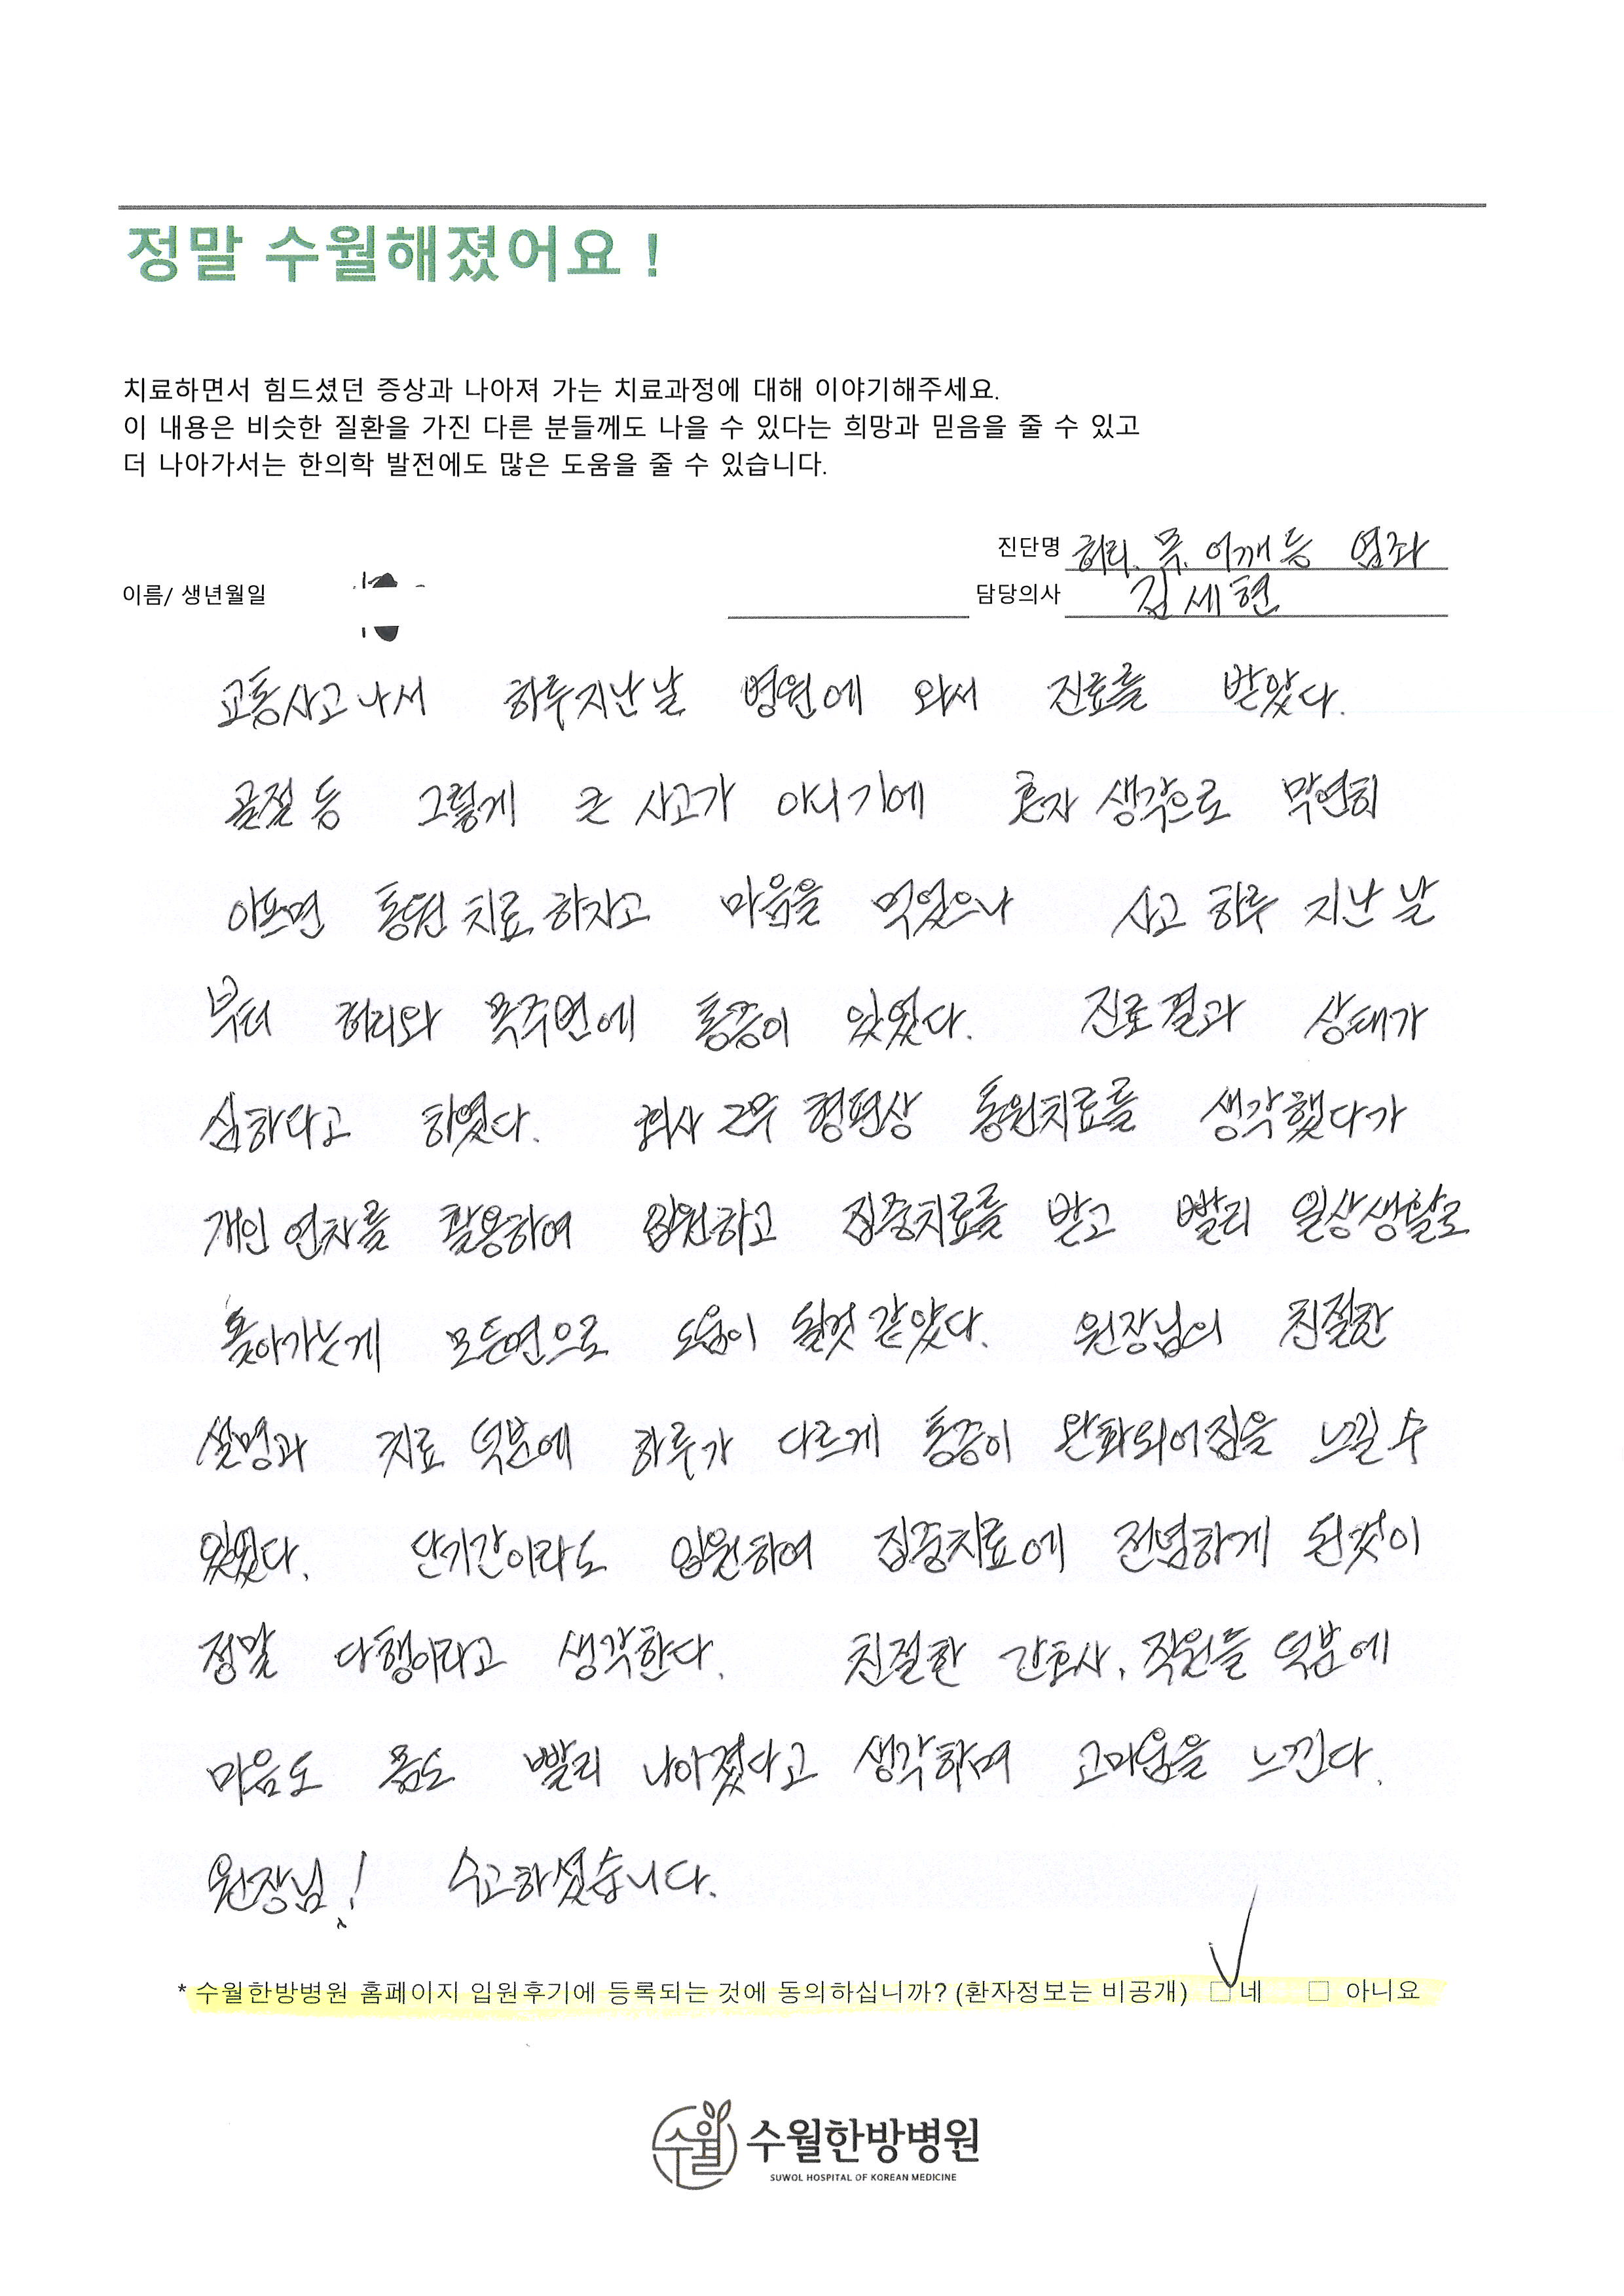 정말 수월해졌어요 !
치료하면서 힘드셨던 증상과 나아져 가는 치료과정에 대해 이야기해주세요.
이 내용은 비슷한 질환을 가진 다른 분들께도 나을 수 있다는 희망과 믿음을 줄 수 있고
더 나아가서는 한의학 발전에도 많은 도움을 줄 수 있습니다.
진단명 허리. 목. 어깨 등 염좌
이름/ 생년월일 담당의사 김세현
교통사고 나서 하루지난날 병원에 와서 진료를 받았다.
골절 등 그렇게 큰 사고가 아니기에 혼자 생각으로 막연히
아프면 통원 치료 하자고 마음을 먹었으나 사고 하루 지난 날
부터 허리와 목주변에 통증이 있었다. 진료결과 상태가
심하다고 하였다. 회사 근무 형편상 통원치료를 생각했다가
개인 연차를 활용하여 입원하고 집중치료를 받고 빨리 일상생활로
돌아가는게 모든면으로 도움이 될것 같았다. 원장님의 친절한
설명과 치료 덕분에 하루가 다르게 통증이 완화되어짐을 느낄 수
있었다. 단기간이라도 입원하여 집중치료에 전념하게 된것이
정말 다행이라고 생각한다. 친절한 간호사, 직원들 덕분에
마음도 몸도 빨리 나아졌다고 생각하며 고마움을 느낀다.
원장님! 수고하셨습니다.
* 수월한방병원 홈페이지 입원후기에 등록되는 것에 동의하십니까? (환자정보는 비공개) ☑ 네 □ 아니요
수월 수월한방병원
SUWOL HOSPITAL OF KOREAN MEDICINE